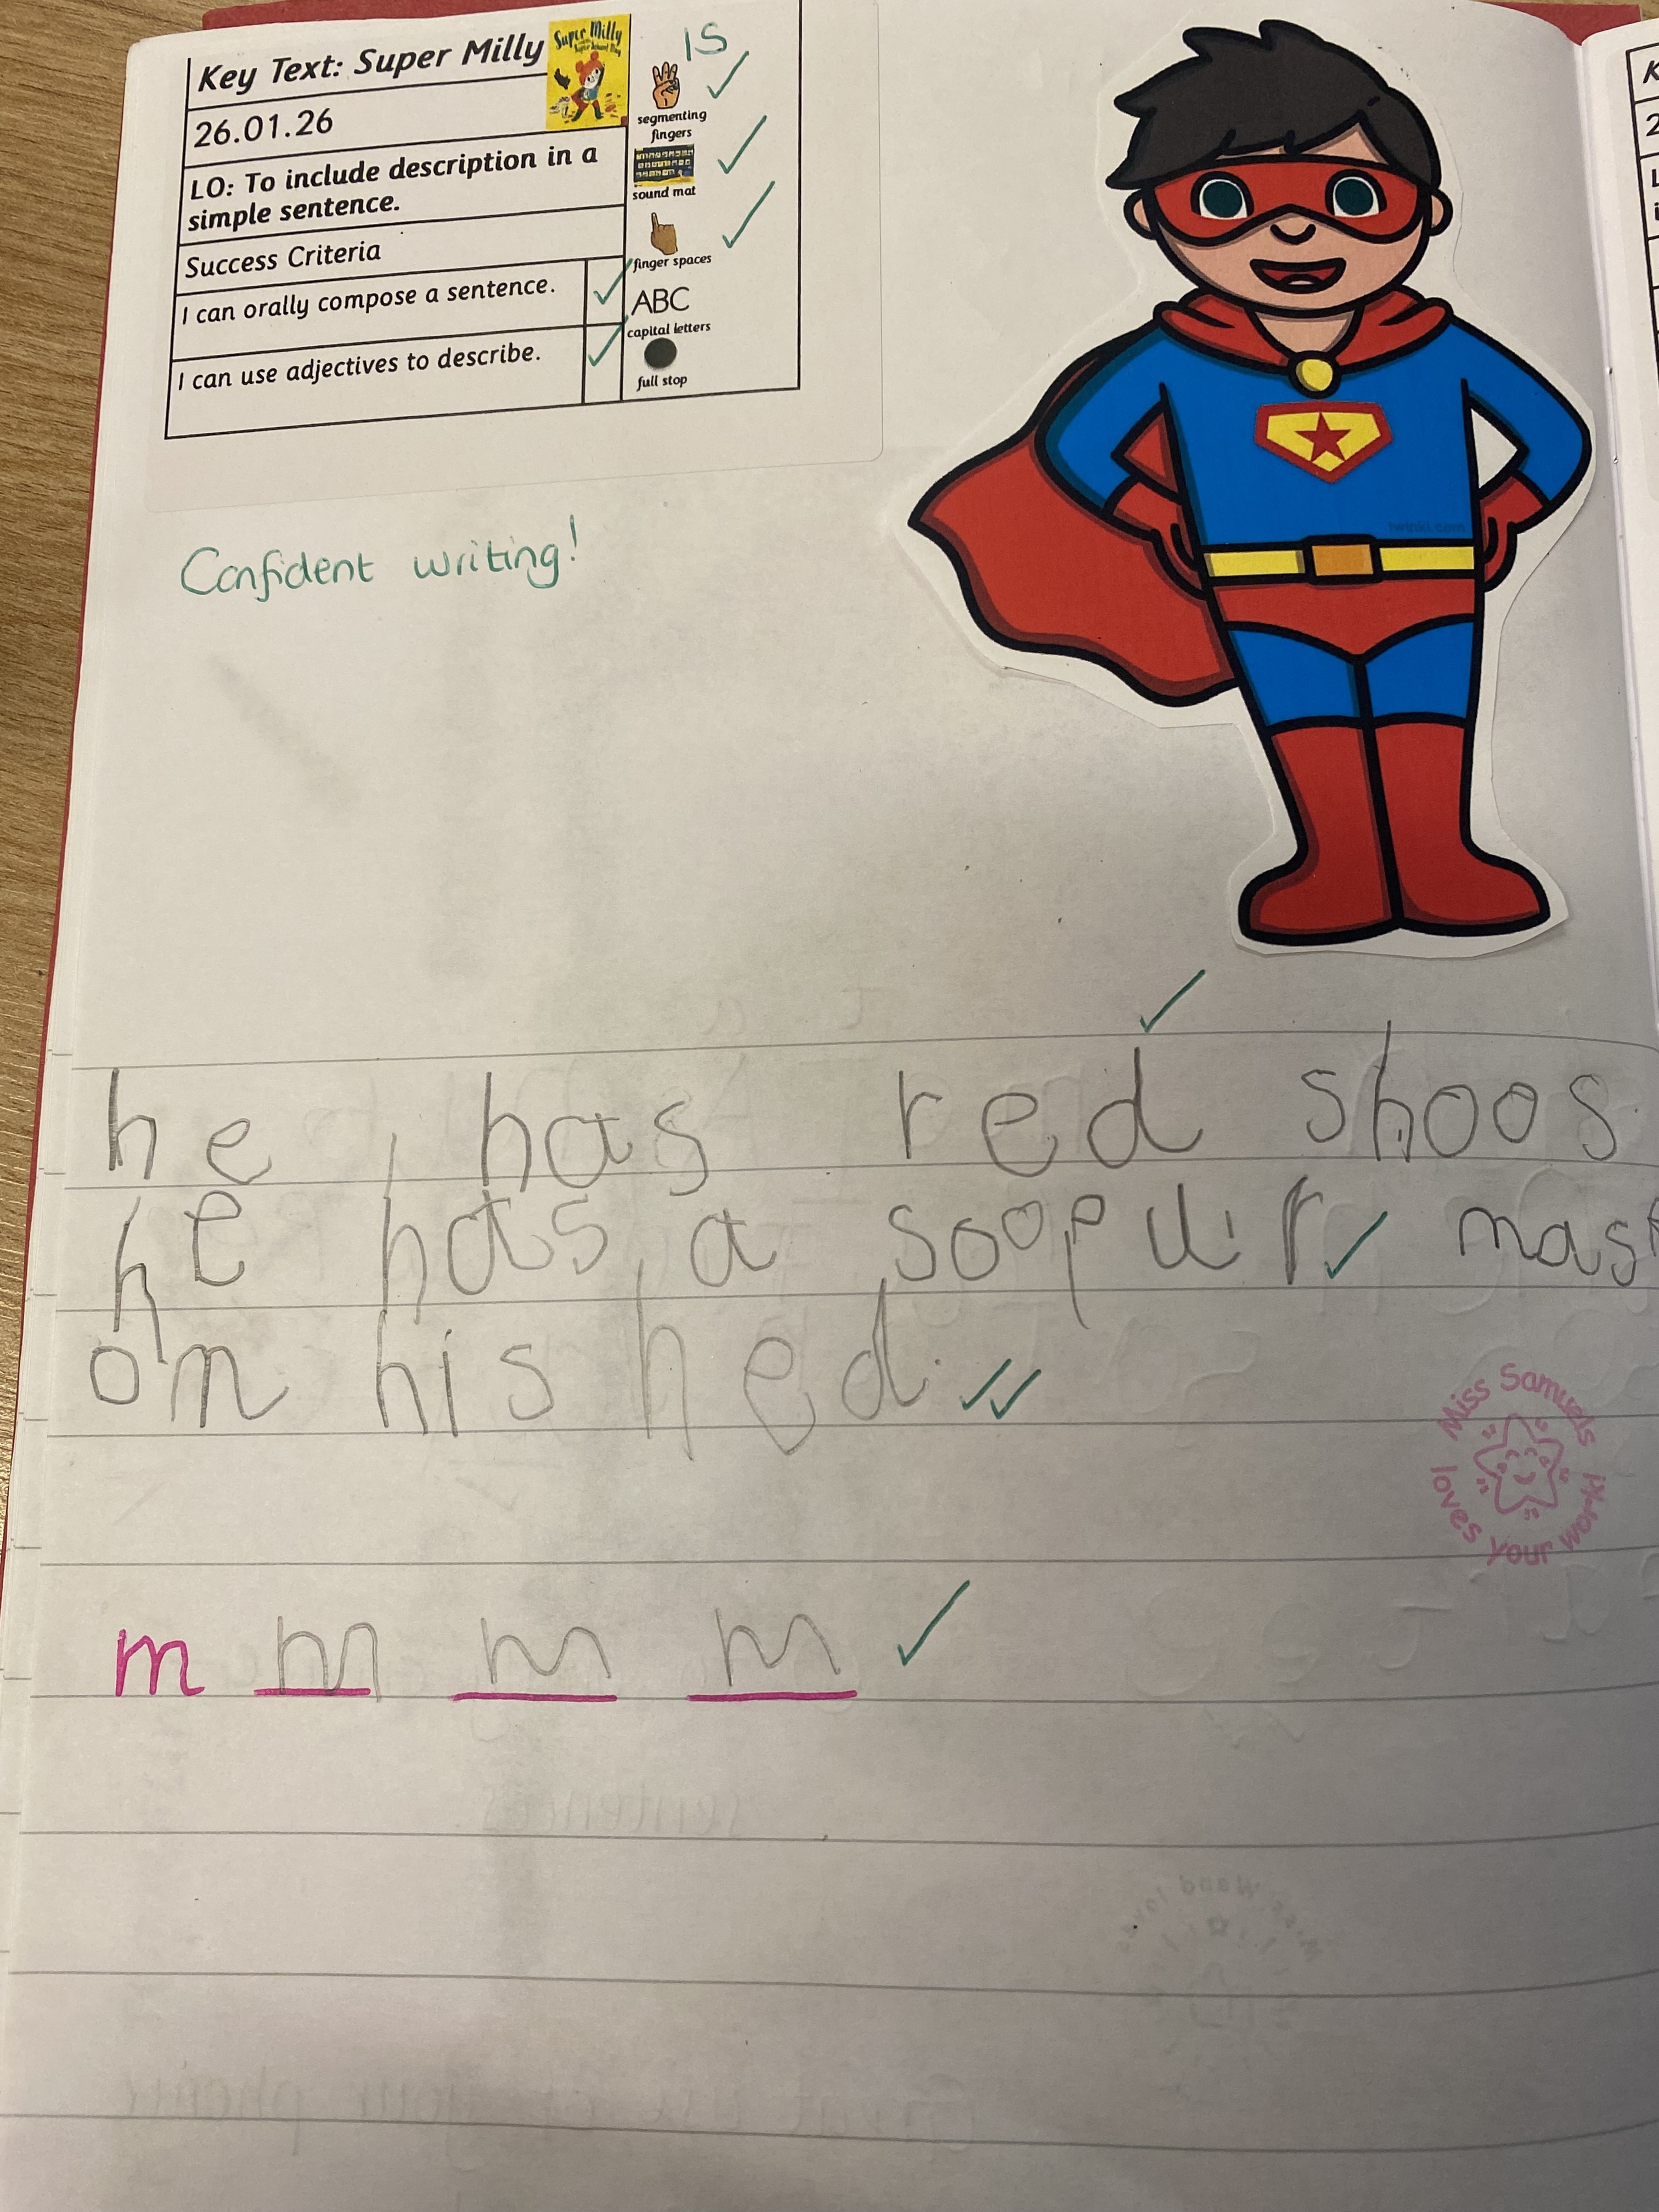 Key Text: Super Milly
Super Milly
26.01.26
LO: To include description in a
simple sentence.
Success Criteria
I can orally compose a sentence.
I can use adjectives to describe.
IS
segmenting
fingers
sound mat
finger spaces
ABC
capital letters
full stop
twinkl.com
Confident writing!
he has red shoos
he has a soopur mask
on his hed.
Miss Samuels
loves your work!
m m m m